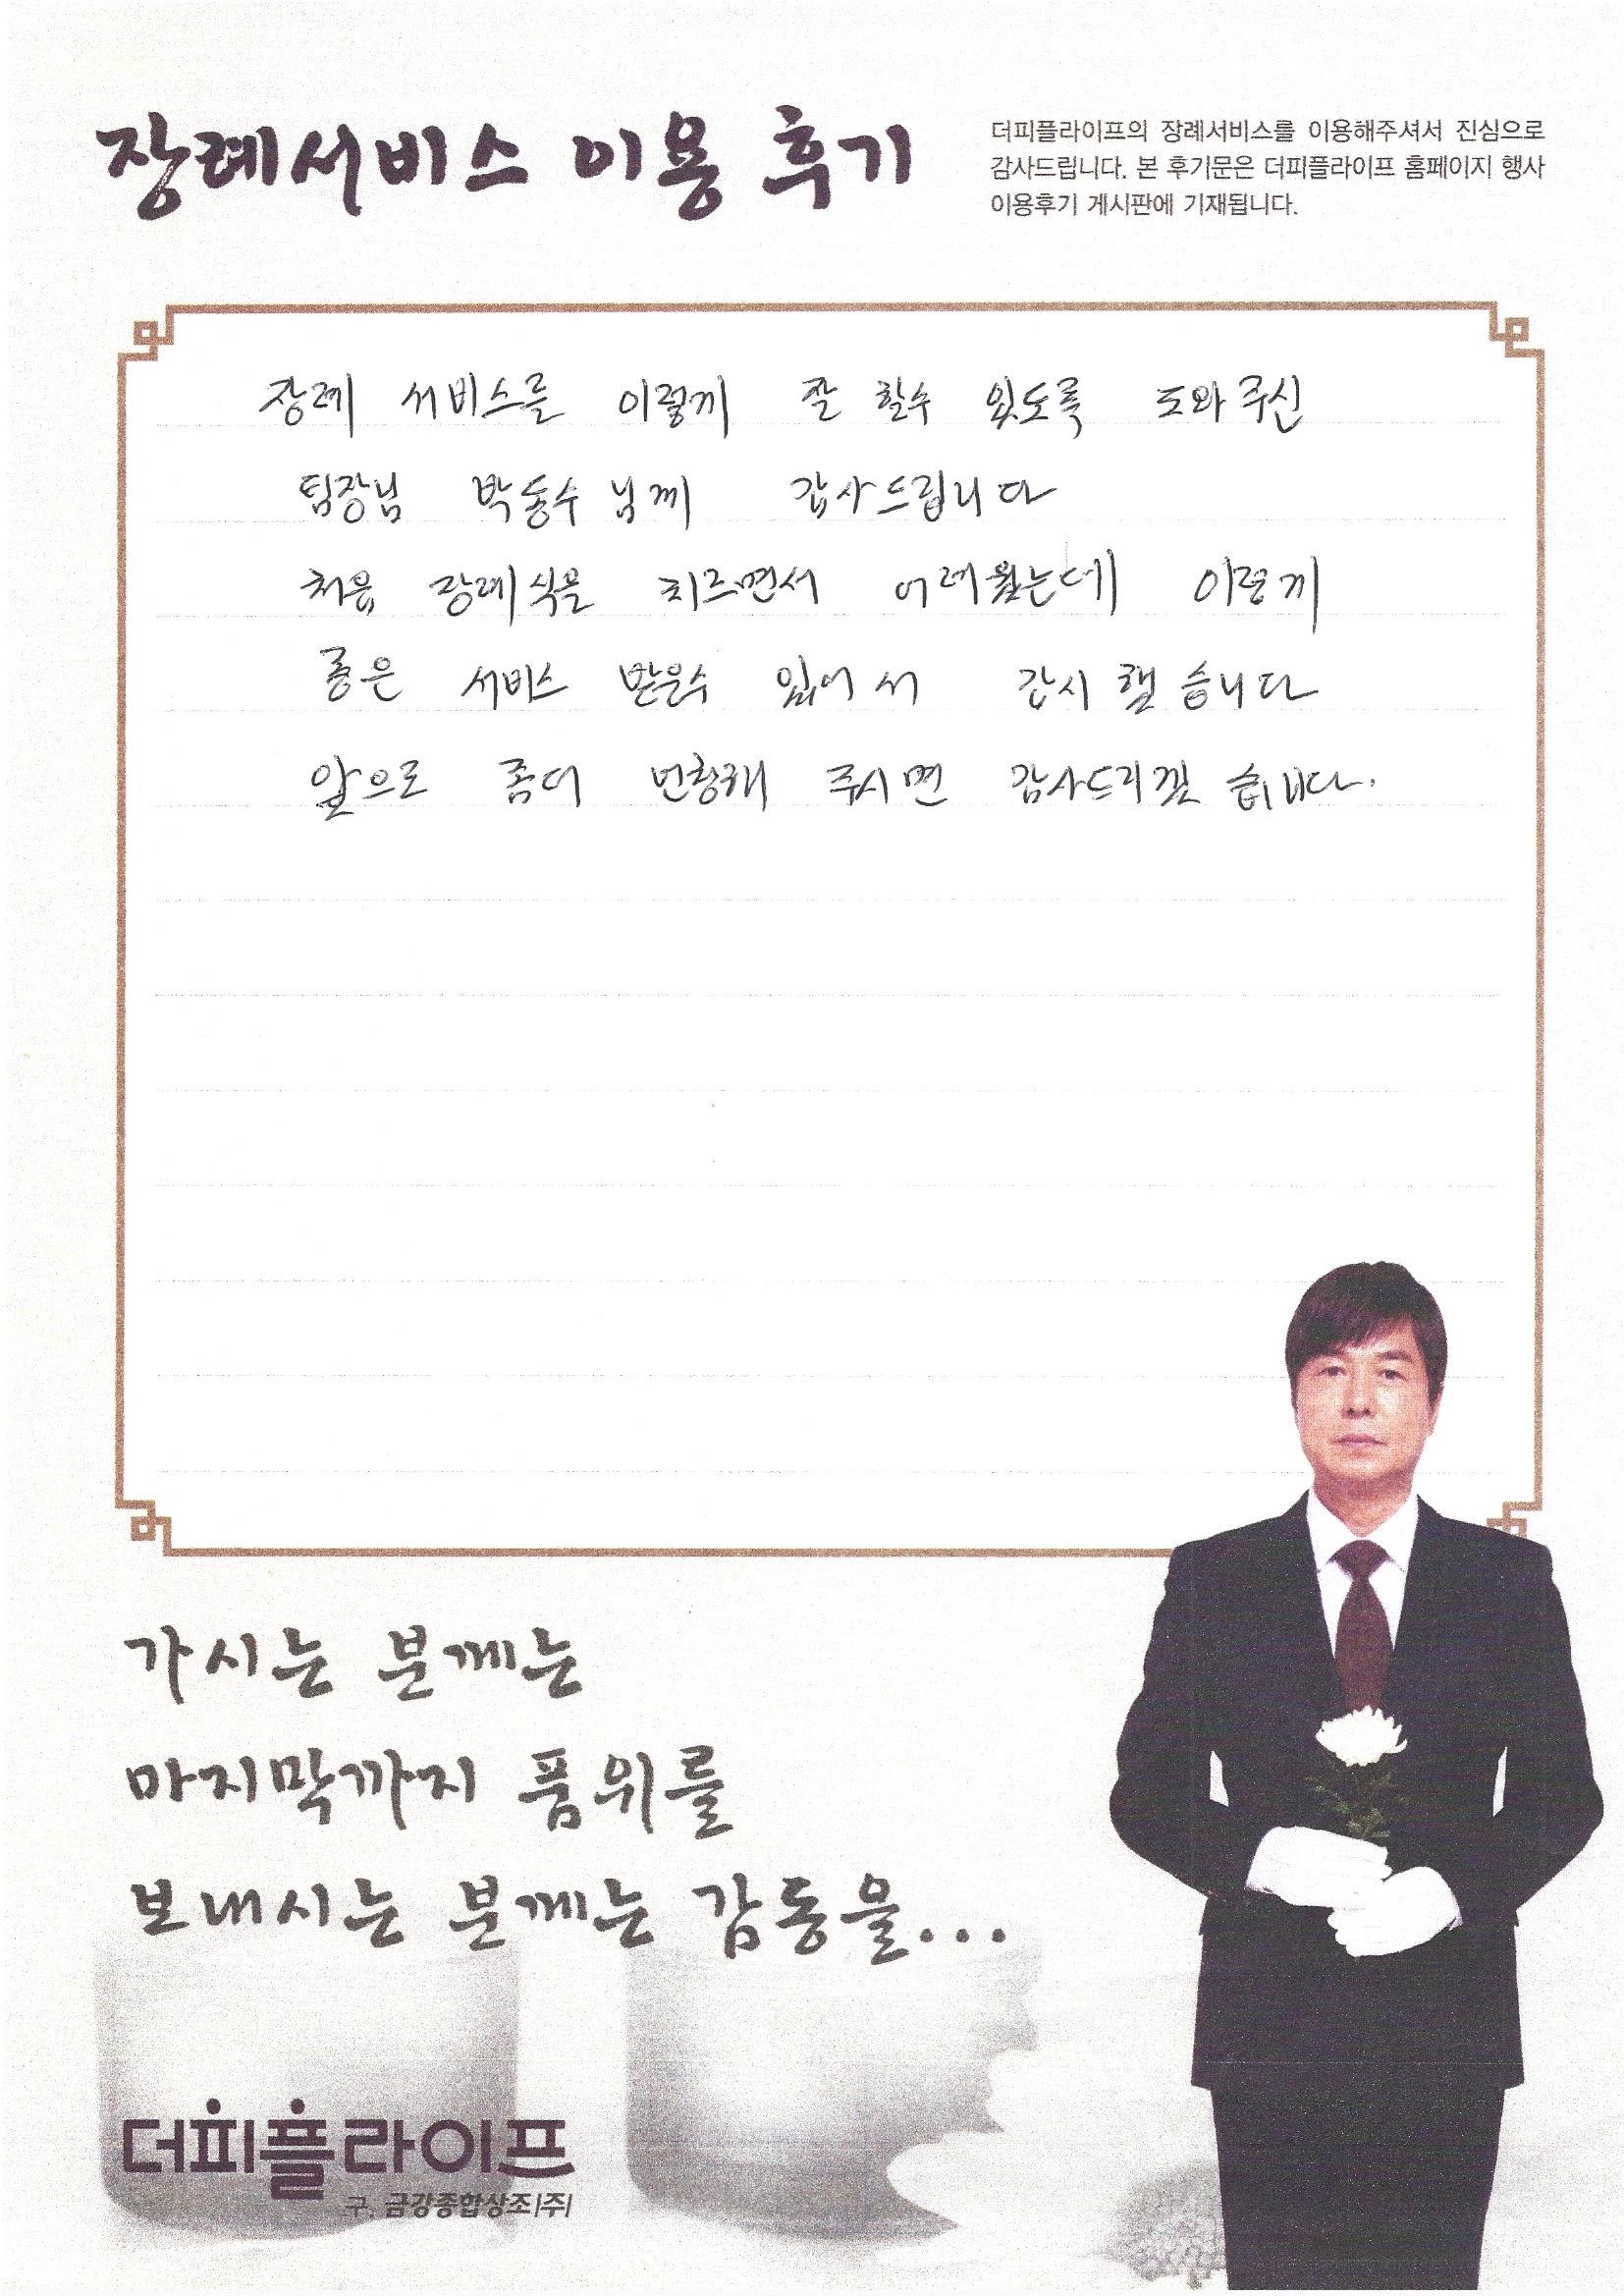 장례서비스 이용 후기
더피플라이프의 장례서비스를 이용해주셔서 진심으로
감사드립니다. 본 후기문은 더피플라이프 홈페이지 행사
이용후기 게시판에 기재됩니다.
장례 서비스를 이렇게 잘 할수 있도록 도와주신
팀장님 박동수님께 감사드립니다
처음 장례식을 치르면서 어려웠는데 이렇게
좋은 서비스 받을수 있어서 감사했습니다
앞으로 좀더 번창해 주시면 감사드리겠습니다.
가시는 분께는
마지막까지 품위를
보내시는 분께는 감동을...
더피플라이프
구. 금강종합상조(주)